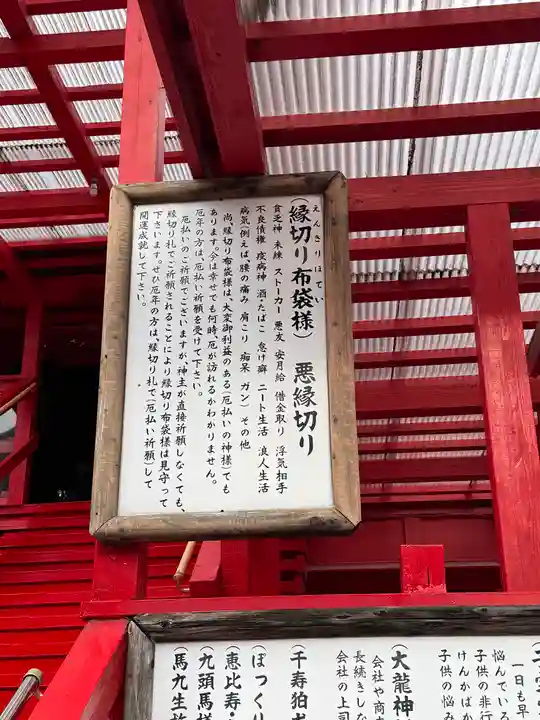 えんきりほてい
（縁切り布袋様） 悪縁切り
貧乏神 未練 ストーカー 悪友 安月給 借金取り 浮気相手
不良債権 疫病神 酒・たばこ 怠け癖 ニート生活 浪人生活
病気（例えば、腰の痛み 肩こり 痴呆 ガン） その他
尚縁切り布袋様は、大変御利益のある（厄払いの神様）でも
あります。今は幸せでも何時、厄が訪れるかわかりません。
厄年の方は、厄払い祈願を受けて下さい。
厄払いのご祈願でございますが、神主が直接祈願しなくても、
縁切り札でご祈願されることにより縁切り布袋様は見守って
下さいます。ぜひ厄年の方は、縁切り札で（厄払い祈願）して
開運成就して下さい。
一日も早
悩んでいる
子供の非行
けんかばか
子供の悩み
（大龍神
会社や商
長続きしな
会社の上司
（千寿狛
（ぽっくり
（恵比寿・
（九頭馬様
（馬九生